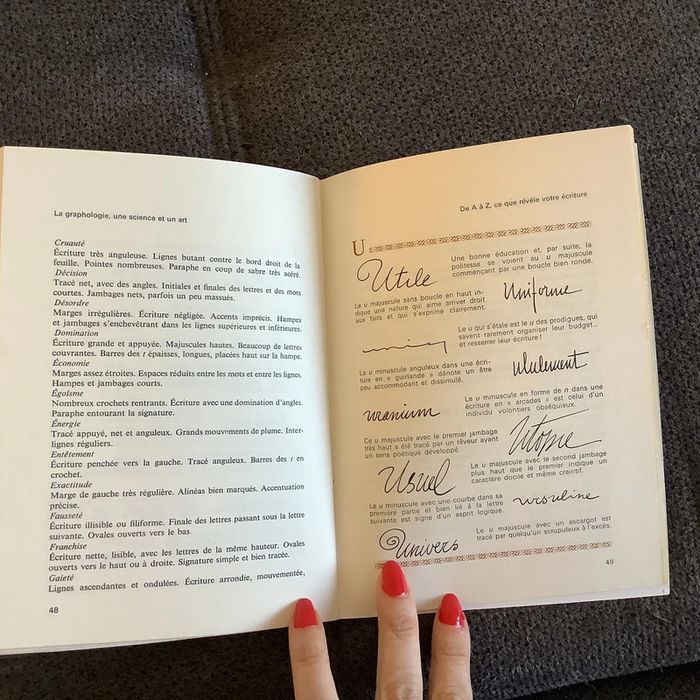 La graphologie, une science et un art
Cruauté
Écriture très anguleuse. Lignes butant contre le bord droit de la
feuille. Pointes nombreuses. Paraphe en coup de sabre très acéré.
Décision
Tracé net, avec des angles. Initiales et finales des lettres et des mots
courtes. Jambages nets, parfois un peu massués.
Désordre
Marges irrégulières. Écriture négligée. Accents imprécis. Hampes
et jambages s'enchevêtrant dans les lignes supérieures et inférieures.
Domination
Écriture grande et appuyée. Majuscules hautes. Beaucoup de lettres
couvrantes. Barres des t épaisses, longues, placées haut sur la hampe.
Économie
Marges assez étroites. Espaces réduits entre les mots et entre les lignes.
Hampes et jambages courts.
Égoïsme
Nombreux crochets rentrants. Écriture avec une domination d'angles.
Paraphe entourant la signature.
Énergie
Tracé appuyé, net et anguleux. Grands mouvements de plume. Inter-
lignes réguliers.
Entêtement
Écriture penchée vers la gauche. Tracé anguleux. Barres des t en
crochet.
Exactitude
Marge de gauche très régulière. Alinéas bien marqués. Accentuation
précise.
Fausseté
Écriture illisible ou filiforme. Finale des lettres passant sous la lettre
suivante. Ovales ouverts vers le bas.
Franchise
Écriture nette, lisible, avec les lettres de la même hauteur. Ovales
ouverts vers le haut ou à droite. Signature simple et bien tracée.
Gaieté
Lignes ascendantes et ondulées. Écriture arrondie, mouvementée,
48
De A à Z, ce que révèle votre écriture
U
Utile
Une bonne éducation et, par suite, la
politesse se voient au u majuscule
commençant par une boucle bien ronde.
Le u majuscule sans boucle en haut in-
dique une nature qui aime arriver droit
aux faits et qui s'exprime clairement.
Uniforme
Le u qui s'étale est le u des prodigues, qui
savent rarement organiser leur budget...
et resserrer leur écriture !
Le u minuscule anguleux dans une écri-
ture en « guirlande » dénote un être
peu accommodant et dissimulé.
uranium
Le u minuscule en forme de n dans une
écriture en « arcades » est celui d'un
individu volontiers obséquieux.
Le u majuscule avec le premier jambage
très haut a été tracé par un rêveur ayant
un sens poétique développé.
Utopie
Usuel
Le u majuscule avec le second jambage
plus haut que le premier indique un
caractère docile et même craintif.
Le u minuscule avec une courbe dans sa
première partie et bien lié à la lettre
suivante est signe d'un esprit logique.
ursuline
Univers
Le u majuscule avec un escargot est
tracé par quelqu'un scrupuleux à l'excès.
49